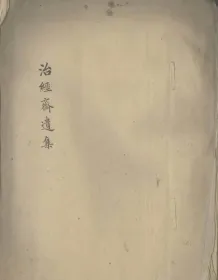 治經齋遺集